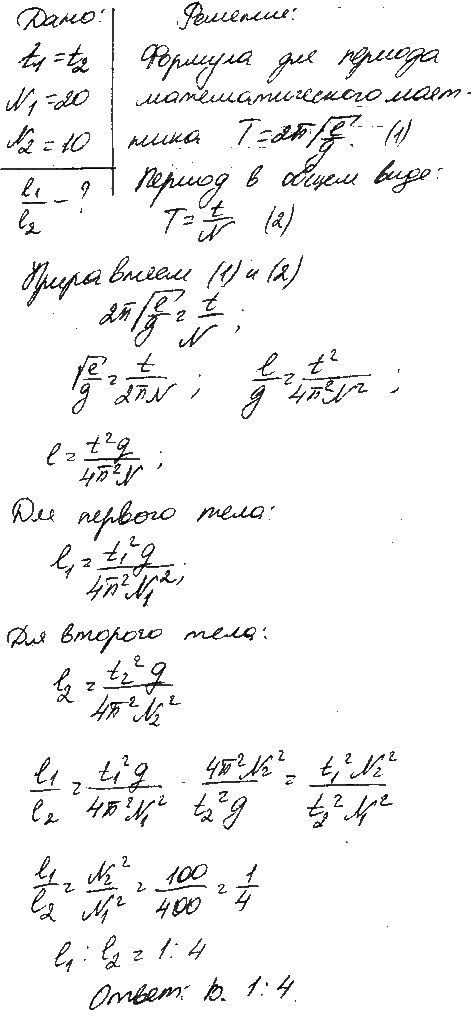 Дано: Решение:
t₁ = t₂ Формула для периода
N₁ = 20 математического маят-
N₂ = 10 ника T = 2π√(l/g) (1)
l₁/l₂ - ? Период в общем виде:
T = t/N (2)
Приравняем (1) и (2)
2π√(l/g) = t/N ;
√(l/g) = t/(2πN) ; l/g = t²/(4π²N²) ;
l = t²g/(4π²N) ;
Для первого тела:
l₁ = t₁²g/(4π²N₁²) ;
Для второго тела:
l₂ = t₂²g/(4π²N₂²)
l₁/l₂ = t₁²g/(4π²N₁²) · 4π²N₂²/(t₂²g) = t₁²N₂²/(t₂²N₁²)
l₁/l₂ = N₂²/N₁² = 100/400 = 1/4
l₁ : l₂ = 1 : 4
Ответ: в. 1 : 4.